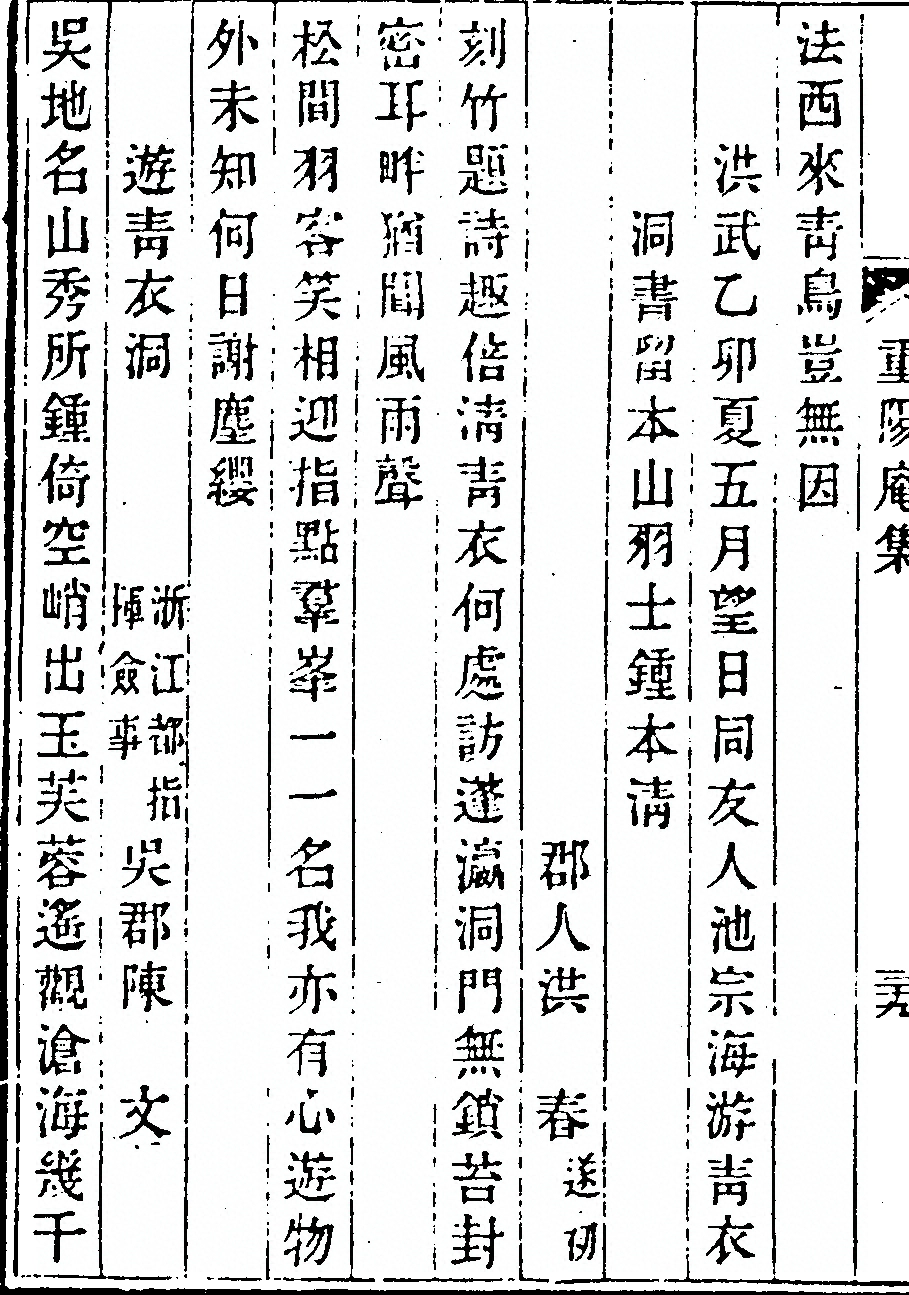 重陽庵集
法西來青鳥豈無因
洪武乙卯夏五月望日同友人池宗海游青衣
洞書留本山羽士鍾本清
郡人洪 春
刻竹題詩趣倍清青衣何處訪蓬瀛洞門無鎖苔封
密耳畔猶聞風雨聲
松間羽客笑相迎指點羣峯一一名我亦有心遊物
外未知何日謝塵纓
遊青衣洞 浙江都指揮僉事 吳郡陳 文
吳地名山秀所鍾倚空峭出玉芙蓉遙觀滄海幾千